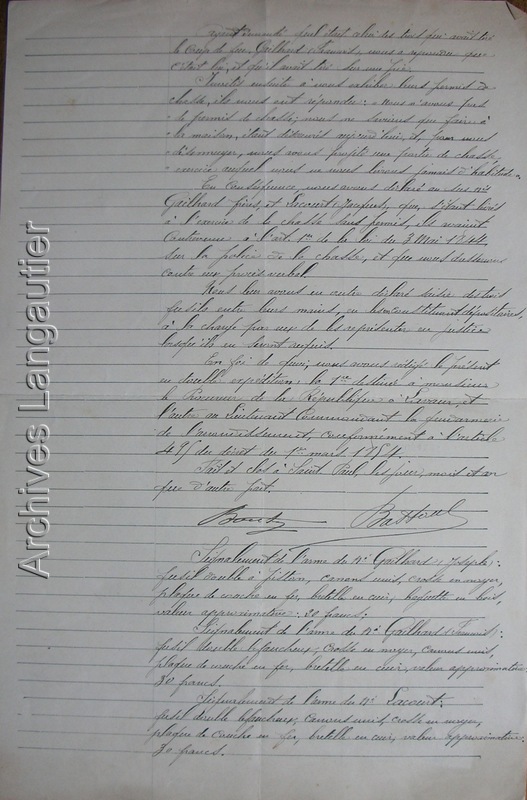 ayant demandé quel était celui des trois qui avait tiré
le coup de feu, Gailhard François, nous a répondu que
c'était lui, et qu'il avait tiré sur une pie.
Invités ensuite à nous exhiber leurs permis de
chasse, ils nous ont répondu: « Nous n'avons pas
« de permis de chasse; nous ne savions que faire à
« la maison, étant désœuvrés aujourd'hui, et, pour nous
« désennuyer, nous avons projeté une partie de chasse,
« exercice auquel nous ne nous livrons jamais d'habitude. »
En conséquence, nous avons déclaré aux sus nés
Gailhard frères, et Lacourt Jacques, que, s'étant livrés
à l'exercice de la chasse sans permis, ils avaient
contrevenu à l'art. 1er de la loi du 3 Mai 1844
sur la police de la chasse, et que nous dressions
contre eux procès-verbal.
Nous leur avons en outre déclaré saisie des trois
fusils entre leurs mains, en les constituant dépositaires,
à la charge par eux de les représenter en justice
lorsqu'ils en seront requis.
En foi de quoi, nous avons rédigé le présent
en double expédition; la 1re destinée à monsieur
le Procureur de la République à Lavaur, et
l'autre au Lieutenant Commandant la gendarmerie
de l'arrondissement, conformément à l'article
495 du décret du 1er mars 1854.
Fait et clos à Saint Paul, les jour, mois et an
que d'autre part.
Signalement de l'arme du né Gailhard, Joseph:
fusil double à piston, canons unis, crosse en noyer,
plaque de couche en fer, bretelle en cuir, baguette en bois,
valeur approximative: 20 francs.
Signalement de l'arme du né Gailhard, François:
fusil double Lefaucheux, crosse en noyer, canons unis,
plaque de couche en fer, bretelle en cuir, valeur approximative:
30 francs.
Signalement de l'arme du né Lacourt:
fusil double Lefaucheux, canons unis, crosse en noyer,
plaque de couche en fer, bretelle en cuir, valeur approximative:
30 francs.
Archives Langautier